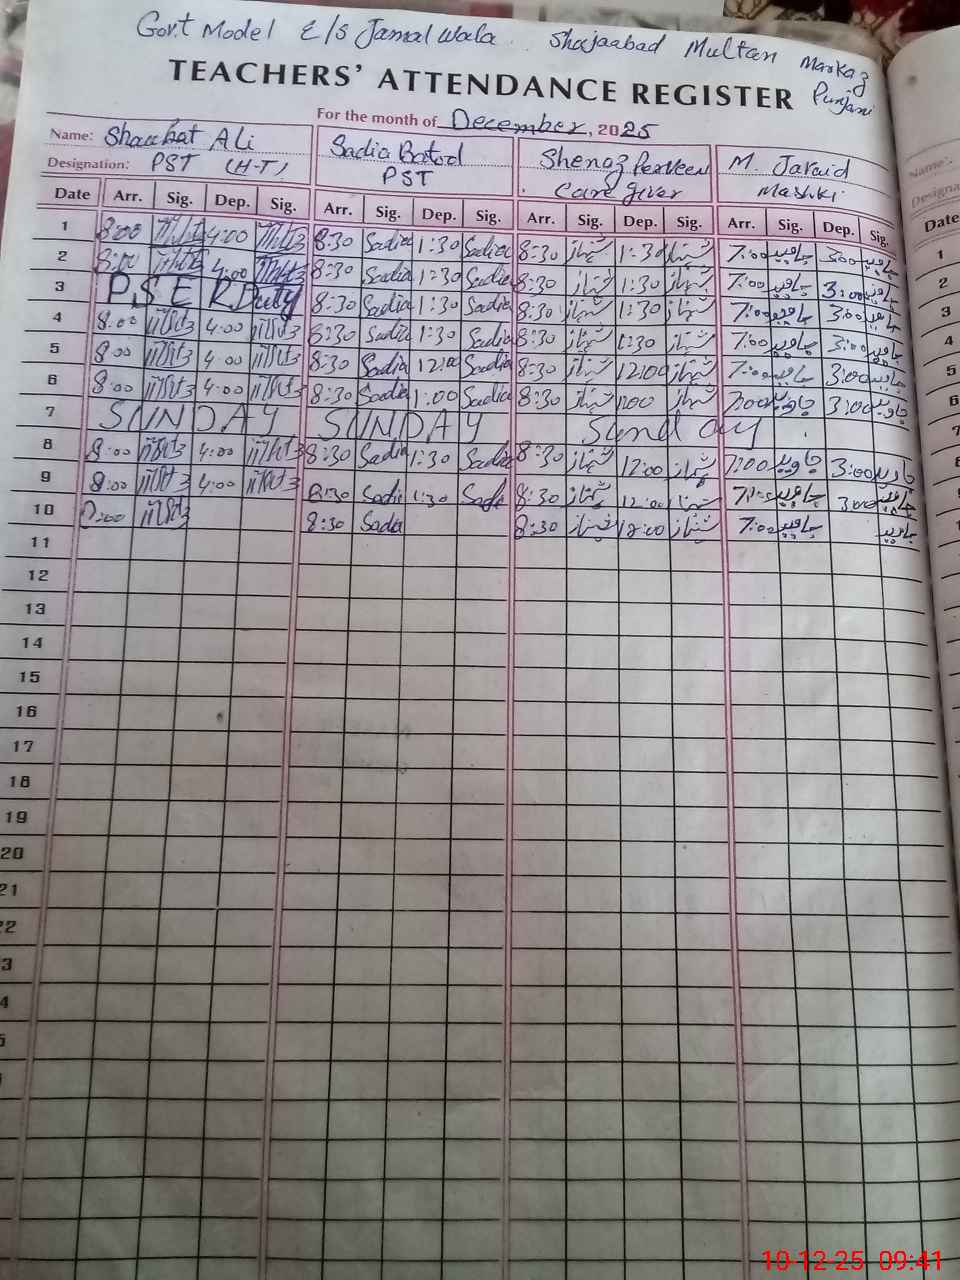 Govt Model E/S Jamal Wala .. Shajaabad Multan Markaz
Punjani
TEACHERS' ATTENDANCE REGISTER
For the month of December, 2025
Name: Shaukat Ali Sadia Batool Shenaz Perveen M. Javaid
Designation: PST (H-T) PST Care giver Mashki
Date Arr. Sig. Dep. Sig. Arr. Sig. Dep. Sig. Arr. Sig. Dep. Sig. Arr. Sig. Dep. Sig.
1 8:00 4:00 8:30 Sadia 1:30 Sadia 8:30 شہناز 1:30 شہناز 7:00 جاوید 3:00 جاوید
2 8:00 4:00 8:30 Sadia 1:30 Sadia 8:30 شہناز 1:30 شہناز 7:00 جاوید 3:00 جاوید
3 P.S.E.R Duty 8:30 Sadia 1:30 Sadia 8:30 شہناز 1:30 شہناز 7:00 جاوید 3:00 جاوید
4 8:00 4:00 8:30 Sadia 1:30 Sadia 8:30 شہناز 1:30 شہناز 7:00 جاوید 3:00 جاوید
5 8:00 4:00 8:30 Sadia 12:00 Sadia 8:30 شہناز 12:00 شہناز 7:00 جاوید 3:00 جاوید
6 8:00 4:00 8:30 Sadia 1:00 Sadia 8:30 شہناز 1:00 شہناز 7:00 جاوید 3:00 جاوید
7 SUNDAY SUNDAY Sunday
8 8:00 4:00 8:30 Sadia 1:30 Sadia 8:30 شہناز 12:00 شہناز 7:00 جاوید 3:00 جاوید
9 8:00 4:00 8:30 Sadia 1:30 Sadia 8:30 شہناز 12:00 شہناز 7:00 جاوید 3:00 جاوید
10 8:00 8:30 Sadia 8:30 شہناز 12:00 شہناز 7:00 جاوید جاوید
11
12
13
14
15
16
17
18
19
20
21
10-12-25 09:41